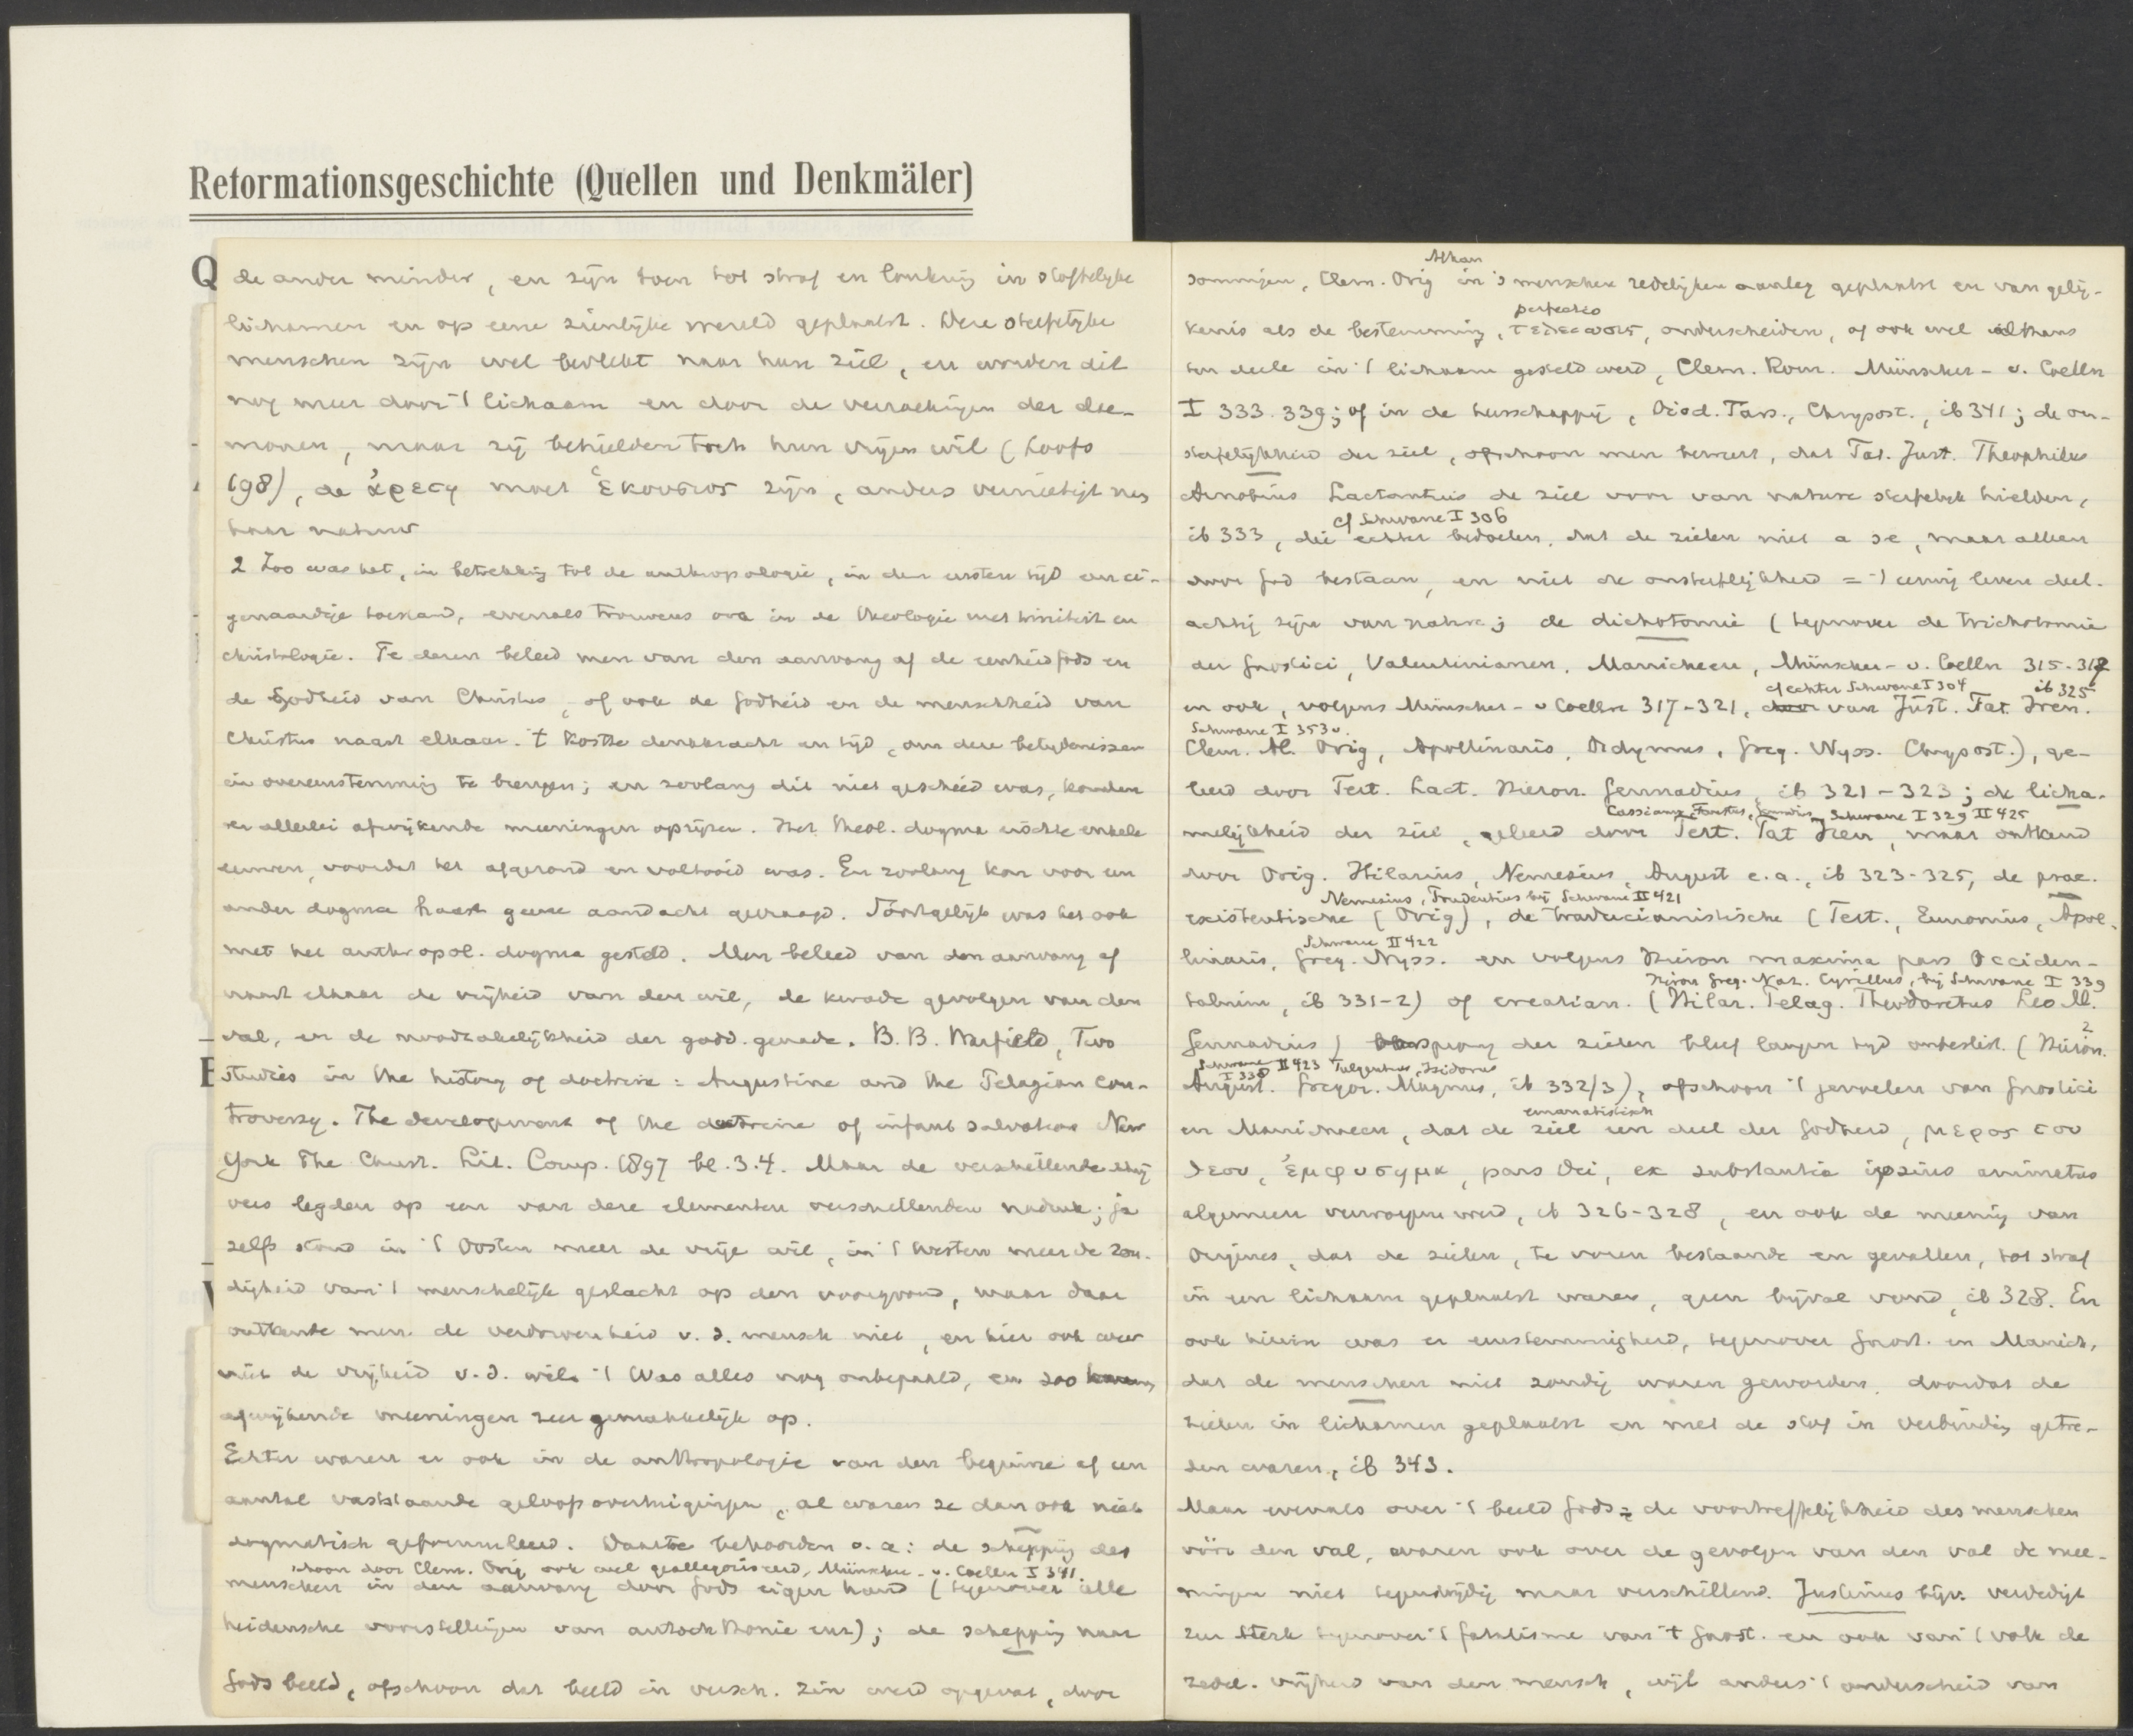 Reformationsgeschichte (Quellen und Denkmäler)
Q
de ander minder, en zijn toen tot straf en loutering in stoffelijke
lichamen en op eene zienlijke wereld geplaatst. Deze stoffelijke
menschen zijn wel bevlekt naar hun ziel, en worden dit
nog meer door 't lichaam en door de verzoekingen der dae-
monen, maar zij behielden toch hun vrijen wil (Loofs
198), de ἀρετη moet ἑκουσιος zijn, anders vernietigt men
haar natuur
2 Zoo was het, in betrekking tot de anthropologie, in den eersten tijd een ei-
genaardige toestand, evenals trouwens ook in de theologie met triniteit en
christologie. Te dezen beleed men van den aanvang af de eenheid Gods en
de Godheid van Christus, of ook de Godheid en de menschheid van
Christus naast elkaar. 't Kostte denkkracht en tijd, om deze belijdenissen
in overeenstemming te brengen; en zoolang dit niet geschied was, konden
er allerlei afwijkende meeningen oprijzen. Het theol. dogma eischte enkele
eeuwen, voordat het afgerond en voltooid was. En zoolang kon voor een
ander dogma haast geene aandacht gevraagd. Soortgelijk was het ook
met het anthropol. dogma gesteld. Men beleed van den aanvang af
naast elkaar de vrijheid van den wil, de kwade gevolgen van den
val, en de noodzakelijkheid der godd. genade. B. B. Warfield, Two
studies in the history of doctrine: Augustine and the Pelagian con-
troversy. The development of the doctrine of infant salvation New
York The Christ. Lit. Comp. 1897 bl. 3.4. Maar de verschillende schrij
vers legden op een van deze elementen verschillenden nadruk; ja
zelfs stond in 't Oosten meer de vrije wil, in 't Westen meer de zon-
digheid van 't menschelijk geslacht op den voorgrond, maar daar
ontkende men de verdorvenheid v. d. mensch niet, en hier ook weer
niet de vrijheid v. d. wil. 't Was alles nog onbepaald, en zoo
afwijkende meeningen zeer gemakkelijk op.
Echter waren er ook in de anthropologie van den beginne af een
aantal vaststaande geloofsovertuigingen, al waren ze dan ook niet
dogmatisch geformuleerd. Daartoe behoorden o. a: de schepping des
schoon door Clem. Orig ook wel geallegoriseerd, Münscher - v. Coelln I 341.
menschen in den aanvang door Gods eigen hand (tegenover alle
heidensche voorstellingen van autochthonie enz); de schepping naar
Gods beeld, ofschoon dat beeld in versch. zin werd opgevat, door
Athan
sommigen, Clem. Orig in 's menschen redelijken aanleg geplaatst en van gelij-
perfectio
kenis als de bestemming, τελειωσις, onderscheiden, of ook wel althans
ten deele in 't lichaam gesteld werd, Clem. Rom. Münscher - v. Coelln
I 333. 339; of in de heerschappij, Diod. Tars., Chrysost., ib 341; de on-
sterfelijkheid der ziel, ofschoon men beweert, dat Tat. Just. Theophilus
Arnobius Lactantius de ziel voor van nature sterfelijk hielden,
cf Schwane I 306
ib 333, die echter bedoelen, dat de zielen niet a se, maar alleen
door God bestaan, en niet de onsterflijkheid = 't eeuwig leven deel-
achtig zijn van natuur; de dichotomie (tegenover de trichotomie
der Gnostici, Valentinianen, Manicheen, Münscher - v. Coelln 315-317
cf echter Schwane I 304 ib 325
en ook, volgens Münscher - v Coelln 317-321, van Just. Tat. Iren.
Schwane I 353 v.
Clem. Al. Orig, Apollinaris, Didymus, Greg. Nyss. Chrysost.), ge-
leerd door Tert. Lact. Hieron. Gennadius, ib 321-323; de licha-
Cassianus, Faustus, Gennadius, Schwane I 329 II 425
melijkheid der ziel, geleerd door Tert. Tat Iren, maar ontkend
door Orig. Hilarius, Nemesius, August e.a., ib 323-325, de prae-
Nemesius, Prudentius bij Schwane II 421
existentische (Orig), de traducianistische (Tert., Eunomius, Apol-
Schwane II 422
linaris, Greg. Nyss. en volgens Hieron maxima pars Occiden-
Hieron Greg. Naz. Cyrillus, bij Schwane I 339
talium, ib 331-2) of creatian. (Hilar. Pelag. Theodoretus Leo M.
Gennadius) oorsprong der zielen bleef langen tijd onbeslist. (Hieron.
Schwane II 423 Fulgentius, Isidorus
I 338
August. Gregor. Magnus, ib 332/3), ofschoon 't gevoelen van Gnostici
emanatistisch
en Manichaeen, dat de ziel een deel der Godheid, μερος του
θεου, ἐμφυσημα, pars Dei, ex substantia ipsius animetus
algemeen verworpen werd, ib 326-328, en ook de meening van
Origenes, dat de zielen, te voren bestaande en gevallen, tot straf
in een lichaam geplaatst waren, geen bijval vond, ib 328. En
ook hierin was er eenstemmigheid, tegenover Gnost. en Manich,
dat de menschen niet zondig waren geworden, doordat de
zielen in lichamen geplaatst en met de stof in verbinding getre-
den waren, ib 343.
Maar evenals over 't beeld Gods = de voortreffelijkheid des menschen
vóór den val, waren ook over de gevolgen van den val de mee-
ningen niet tegenstrijdig maar verschillend. Justinus bijv. verdedigt
zeer sterk tegenover 't fatalisme van 't Gnost. en ook van 't volk de
zedel. vrijheid van den mensch, wijl anders 't onderscheid van